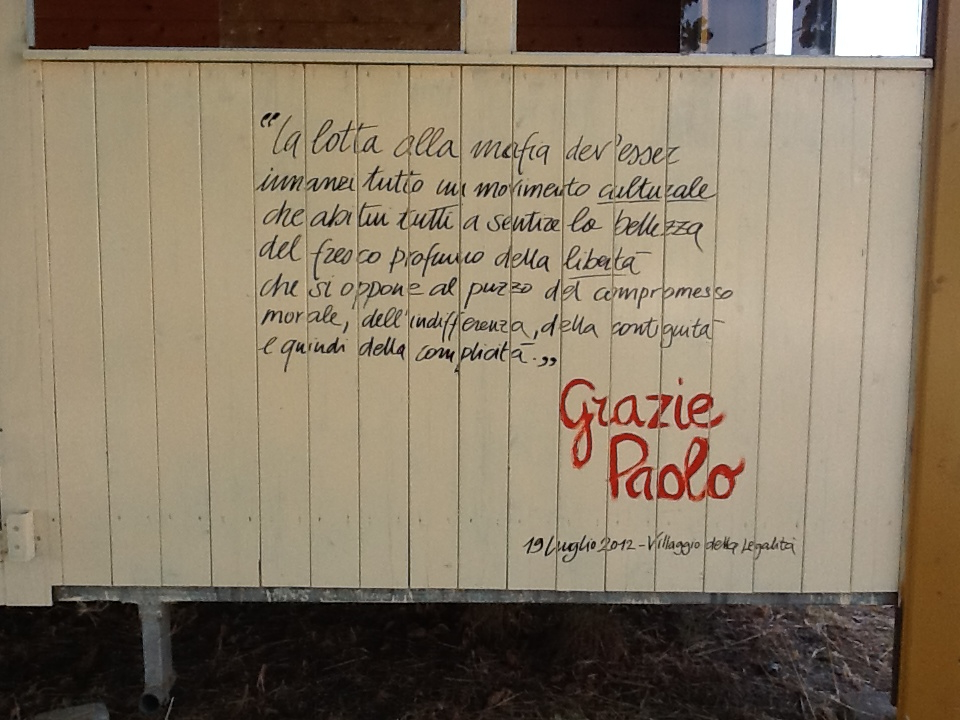 "La lotta alla mafia dev'esser
innanzi tutto un movimento culturale
che abitui tutti a sentire la bellezza
del fresco profumo della libertà
che si oppone al puzzo del compromesso
morale, dell'indifferenza, della contiguità
e quindi della complicità."
Grazie
Paolo
19 Luglio 2012 - Villaggio della Legalità